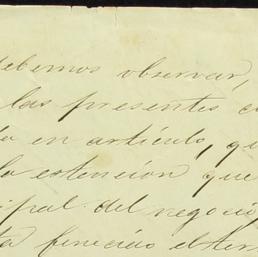 debemos observar,
las presentes c
en artículo, qu
la estención que
ipal del negoci
ta fenecido el ter